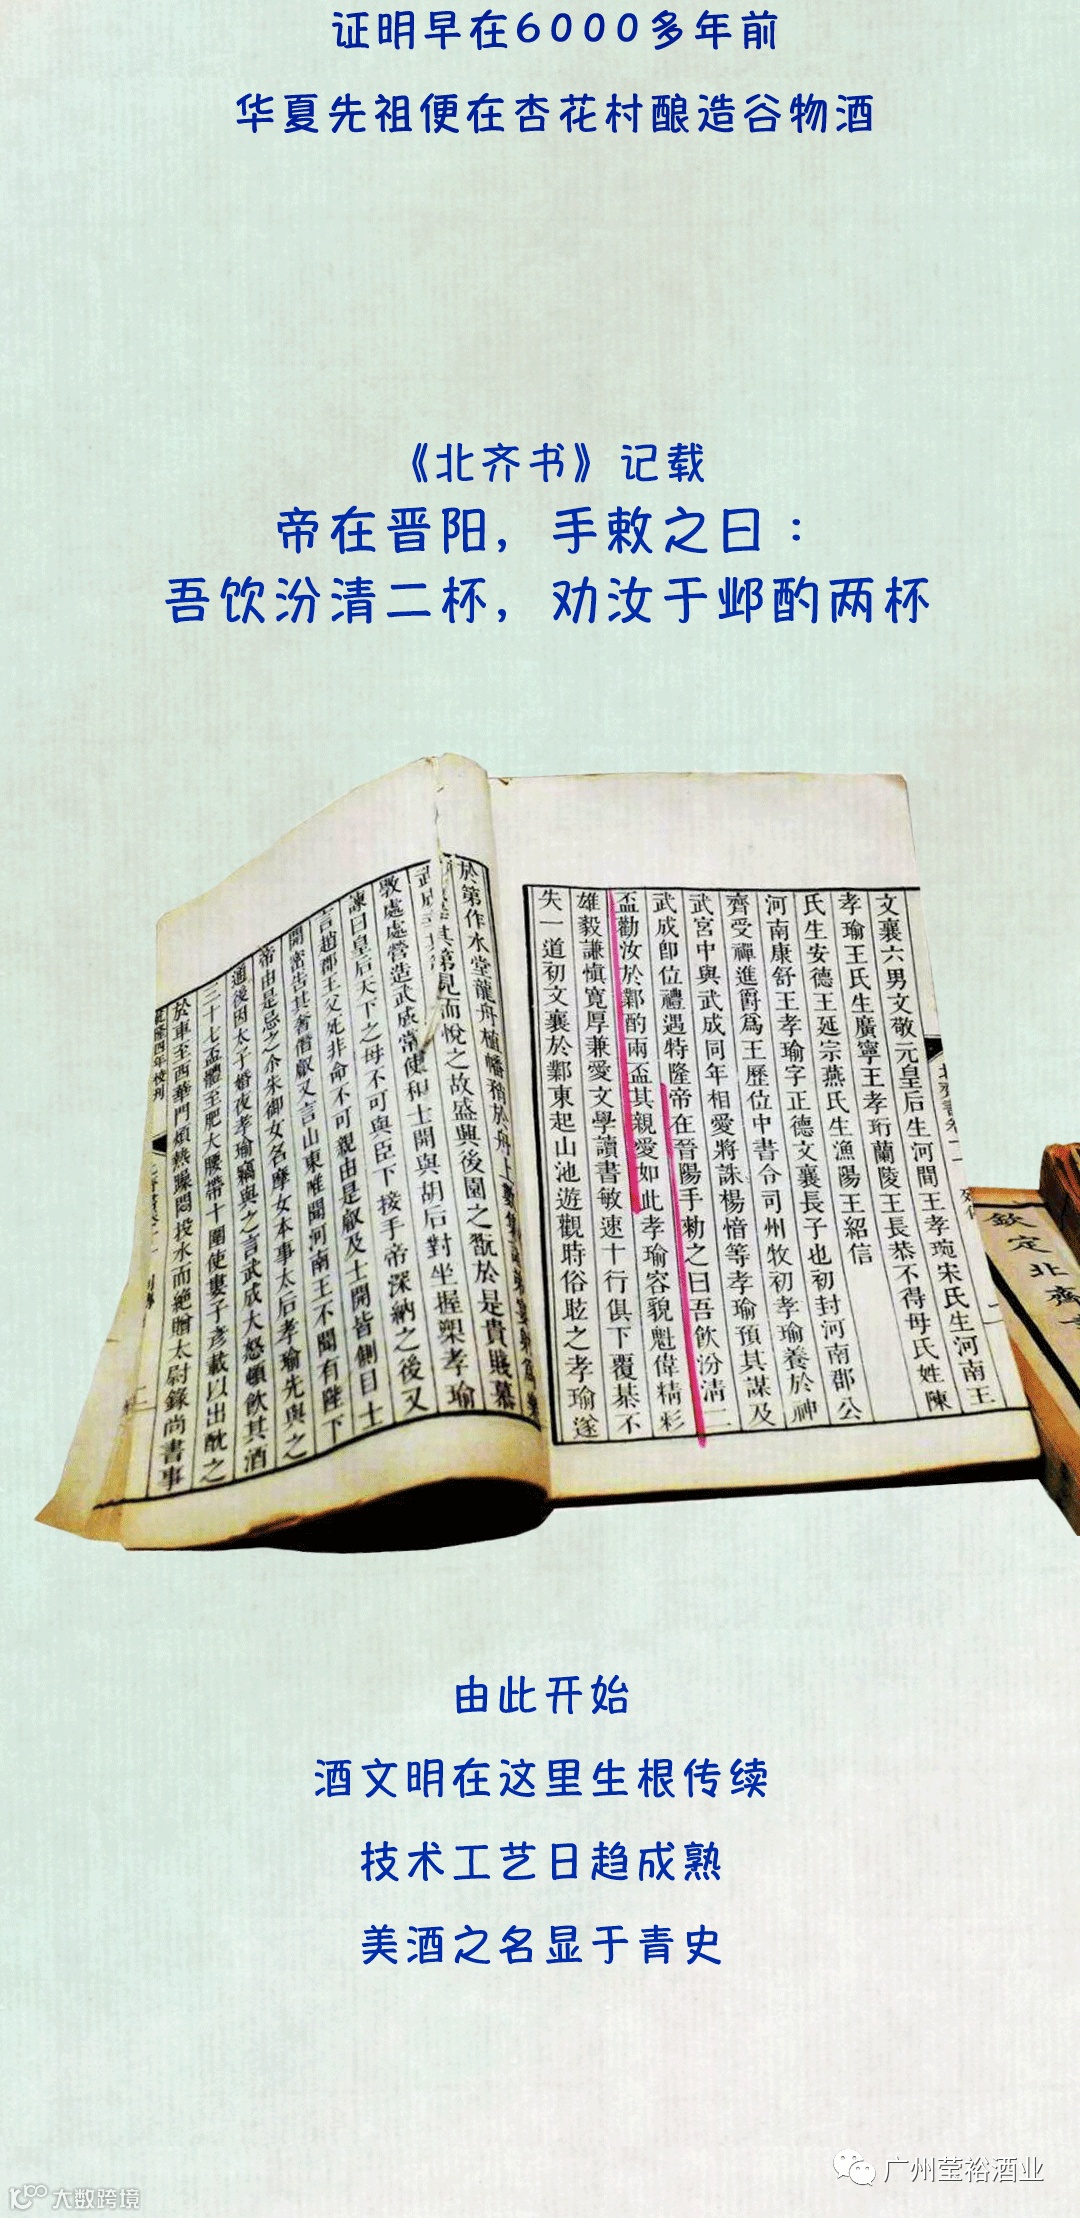 证明早在6000多年前
华夏先祖便在杏花村酿造谷物酒
《北齐书》记载
帝在晋阳，手敕之曰：
吾饮汾清二杯，劝汝于邺酌两杯
文襄六男文敬元皇后生河間王孝琬宋氏生河南王
孝瑜王氏生廣寧王孝珩蘭陵王長恭不得母氏姓陳
氏生安德王延宗燕氏生漁陽王紹信
河南康舒王孝瑜字正德文襄長子也初封河南郡公
齊受禪進爵爲王歷位中書令司州牧初孝瑜養於神
武宮中與武成同年相愛將誅楊愔等孝瑜預其謀及
武成卽位禮遇特隆帝在晉陽手勑之曰吾飲汾清二
盃勸汝於鄴酌兩盃其親愛如此孝瑜容貌魁偉精彩
雄毅謙愼寬厚兼愛文學讀書敏速十行俱下覆棊不
失一道初文襄於鄴東起山池遊觀時俗眩之孝瑜遂
於第作水堂龍舟植幡矟於舟上數集諸弟宴射爲樂
武成幸其第見而悅之故盛興後園之翫於是貴賤慕
斅處處營造武成常使和士開與胡后對坐握槊孝瑜
諫曰皇后天下之母不可與臣下接手帝深納之後又
言趙郡王父死非命不可親由是叡及士開皆側目士
開密告其奢僭叡又言山東唯聞河南王不聞有陛下
帝由是忌之尒朱御女名摩女本事太后孝瑜先與之
通後因太子婚夜孝瑜竊與之言武成大怒頓飲其酒
三十七盃體至肥大腰帶十圍使婁子彥載以出酖之
於車至西華門煩熱躁悶投水而絶贈太尉錄尚書事
欽定北齊書
由此开始
酒文明在这里生根传续
技术工艺日趋成熟
美酒之名显于青史
广州莹裕酒业
大数跨境